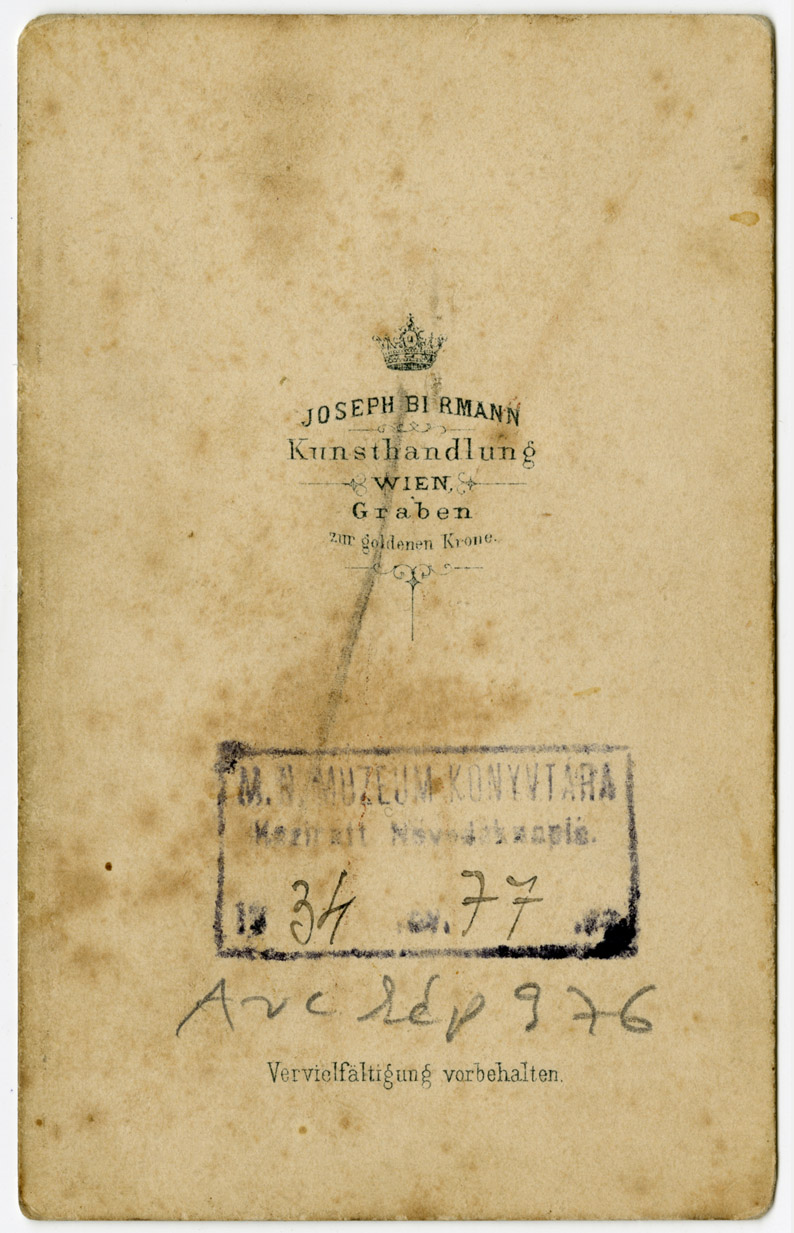 JOSEPH BIRMANN
Kunsthandlung
WIEN,
Graben
zur goldenen Krone.
M. N. MUZEUM KÖNYVTÁRA
Kézirati Növedéknapló.
1934 év. 77
Arc kép 976
Vervielfältigung vorbehalten.